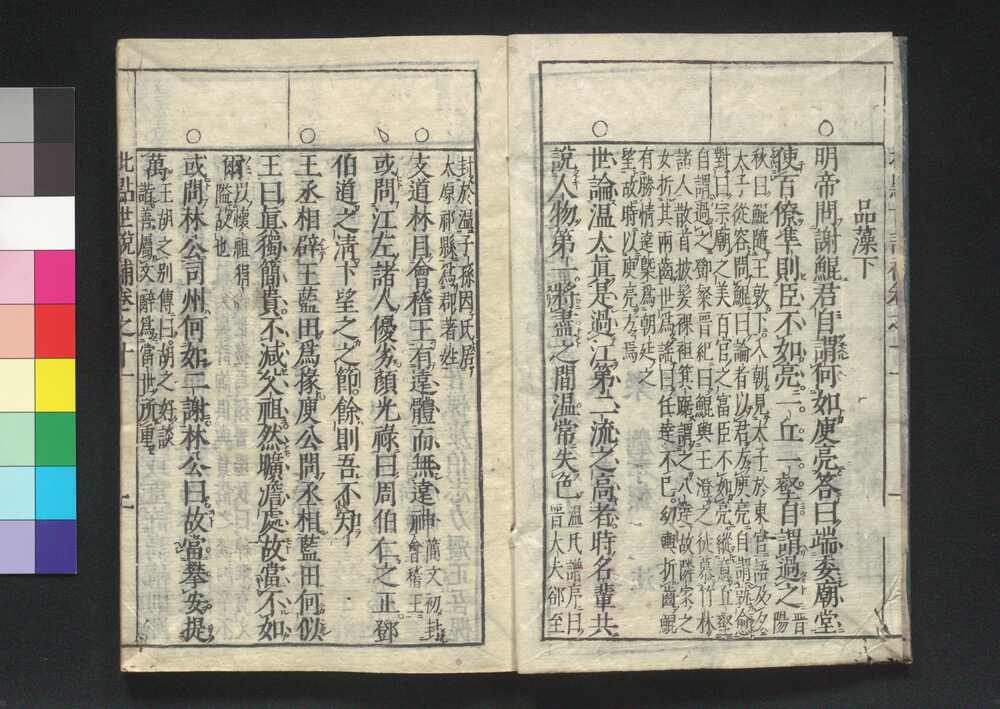 品藻下
明帝問謝鯤君自謂何如庾亮答曰端委廟堂
使百僚準則臣不如亮一丘一壑自謂過之晉陽
秋曰鯤隨王敦下入朝見太子於東宮語及夕
太子從容問鯤曰論者以君方庾亮自謂孰愈
對曰宗廟之美百官之富臣不如亮縱意丘壑
自謂過之鄧粲晉紀曰鯤與王澄之徒慕竹林
諸人散首披髮裸袒箕踞謂之八達故隣家之
女折其兩齒世爲謠曰任達不已幼輿折齒鯤
有勝情遠槩爲朝廷之
望故時以庾亮方焉
世論温太眞是過江第二流之高者時名輩共
說人物第一將盡之間温常失色温氏譜序曰
晉大夫郤至
封於温子孫因氏居
太原祁縣爲郡著姓
支道林目會稽王有遠體而無遠神簡文初封
會稽王
或問江左諸人優劣顏光祿曰周伯仁之正鄧
伯道之清卞望之之節餘則吾不知
王丞相辟王藍田爲掾庾公問丞相藍田何似
王曰眞獨簡貴不減父祖然曠澹處故當不如
爾
以懷祖狷
隘故也
或問林公司州何如二謝林公曰故當攀安提
萬王胡之別傳曰胡之好談
諧善屬文辭爲當世所重
世說
卷之十一